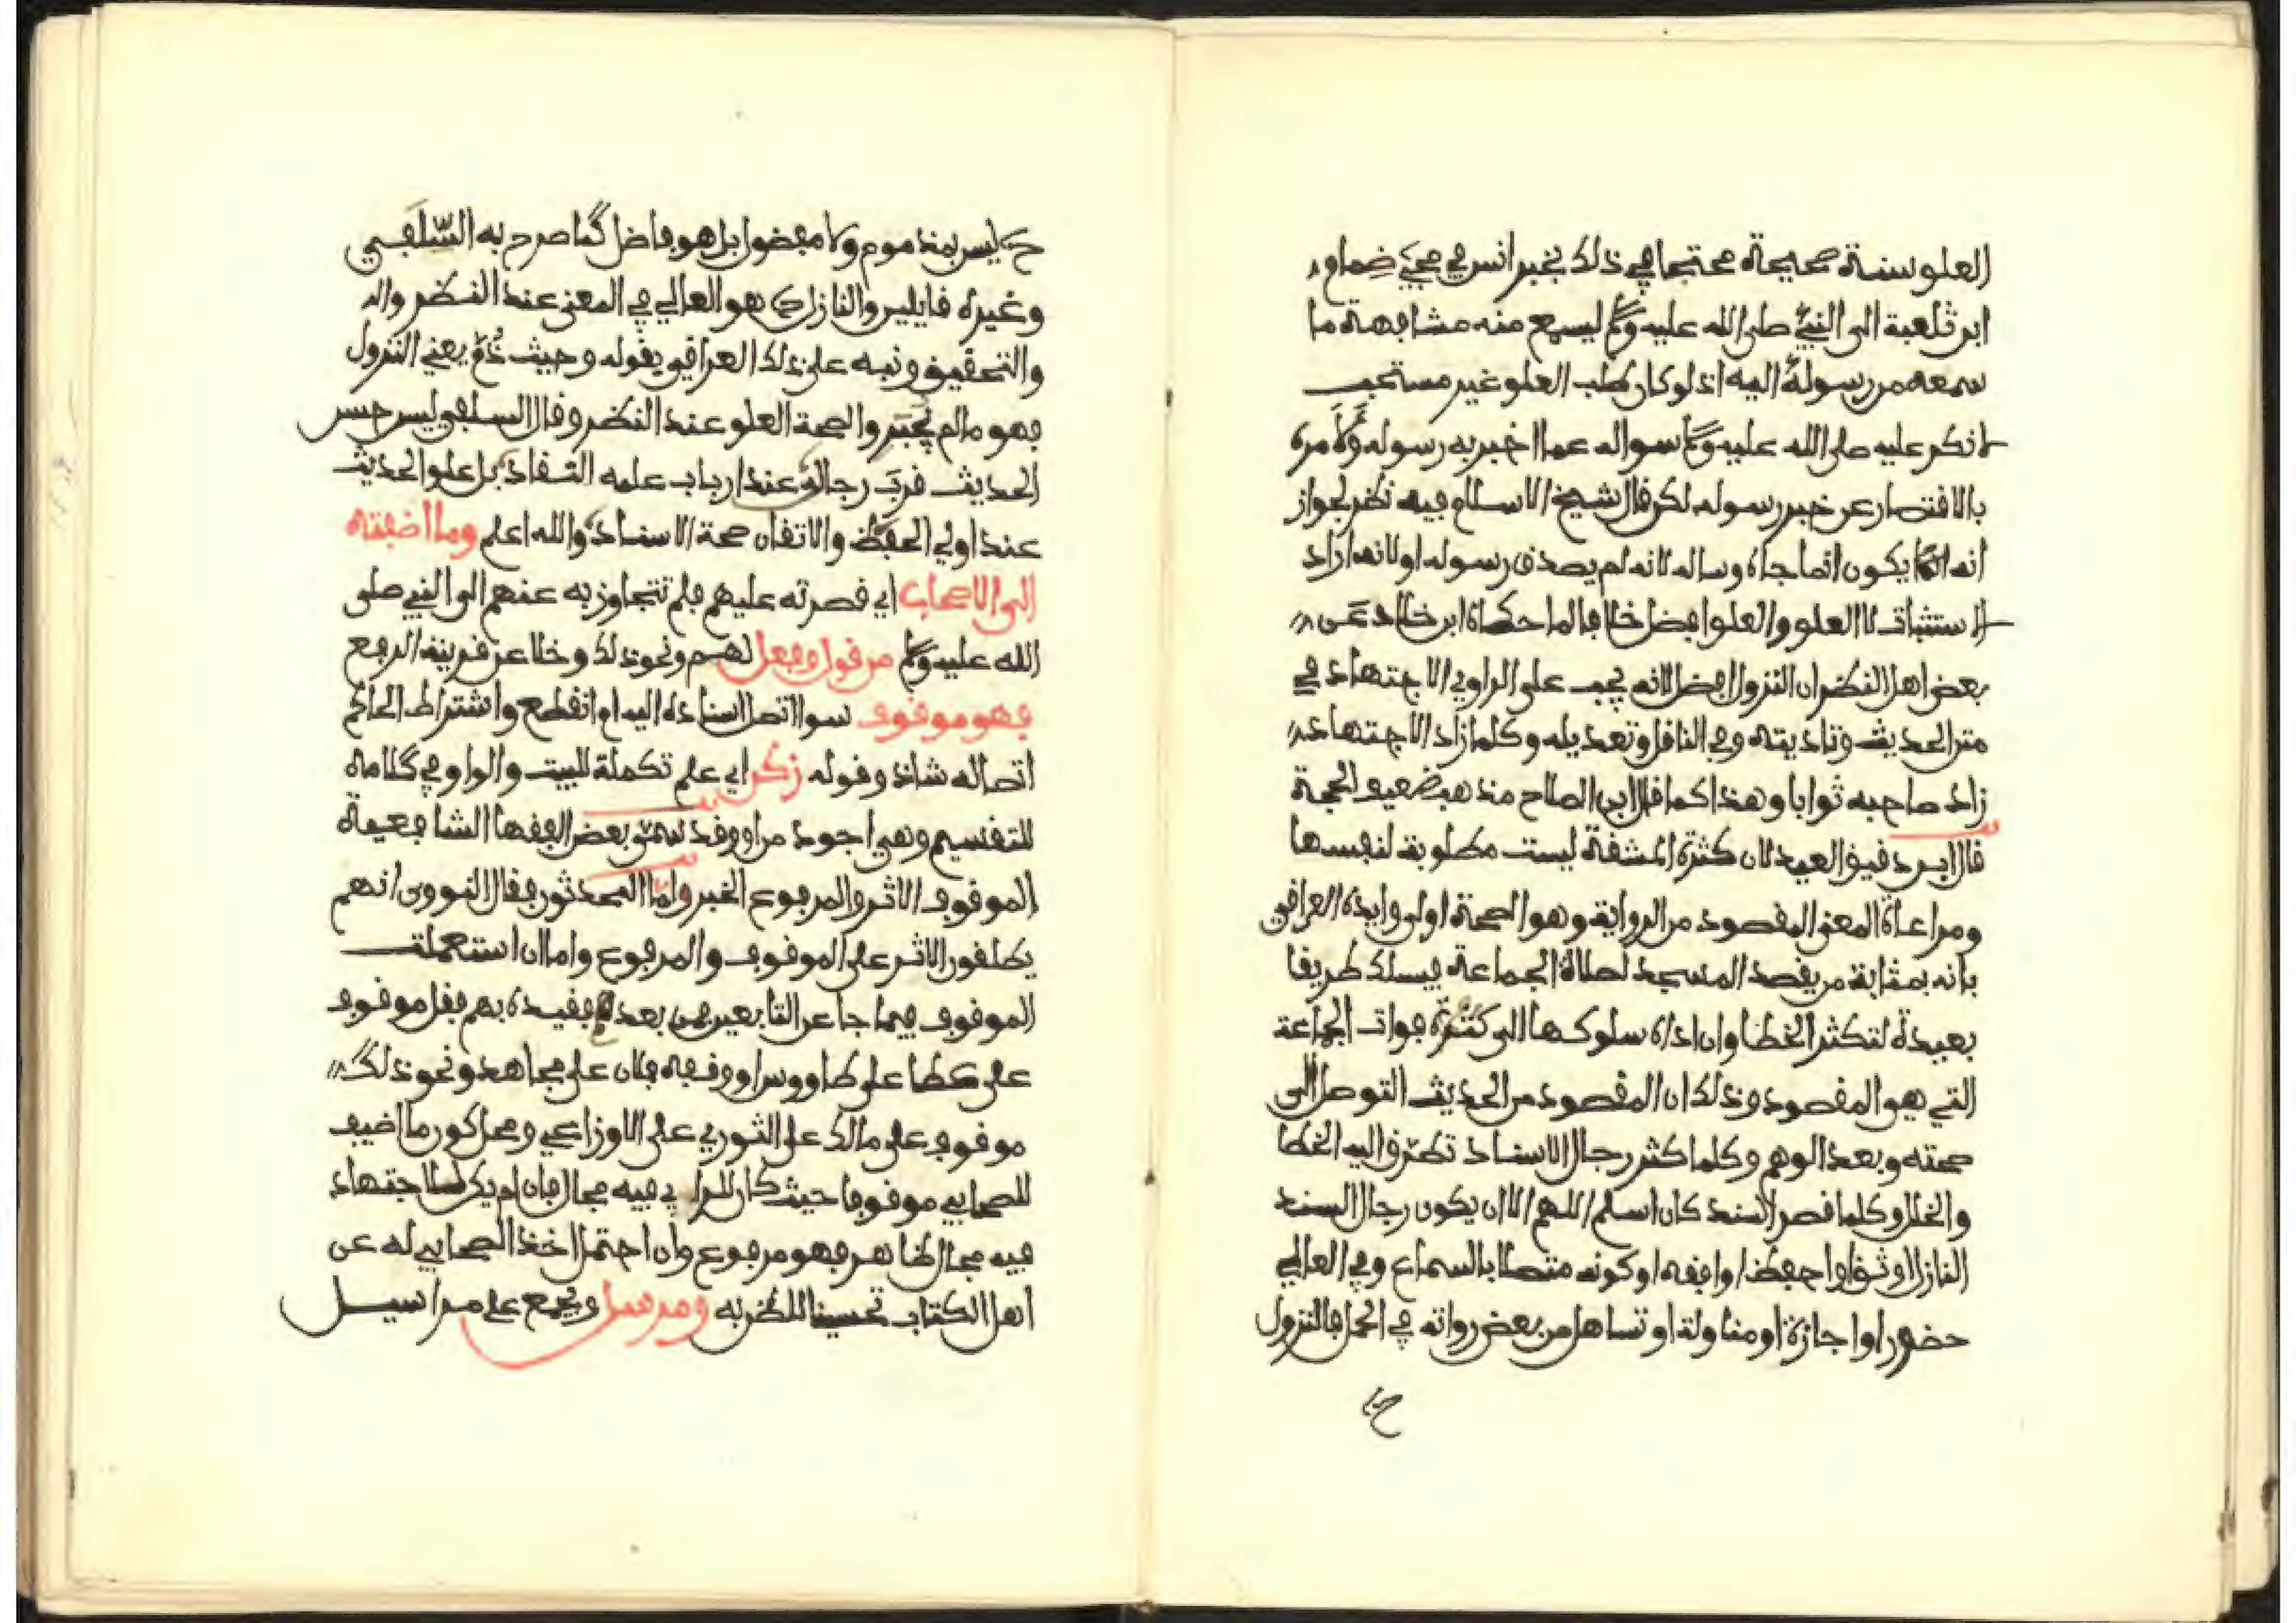 العلو سنة صحيحة محتجا في ذلك بخبر انس في مجيئ ضمام
ابن ثعلبة الى النبيّ صلى الله عليه وسلم ليسمع منه مشافهة ما
سمعه من رسوله اليه اذ لو كان طلب العلو غير مستحب
لانكر عليه صلى الله عليه وسلم سواله عما اخبر به رسوله ولامره
بالاقتصار عن خبر رسوله لكن قال شيخ الاسلام فيه نظر لجواز
انه انما يكون انما جاه وساله لانه لم يصدق رسوله او لانه اراد
الاستثبات لا العلو والعلو افضل خلافا لما حكاه ابن خلاد عن
بعض اهل النظر ان النزول افضل لانه يجب على الراوي الاجتهاد في
متن الحديث وتاديته وفي الناقل وتعديله وكلما زاد الاجتهاد
زاد صاحبه ثوابا وهذا كما قال ابن الصلاح مذهب ضعيف الحجة
قال ابن دقيق العيد لان كثرة المشقة ليست مطلوبة لنفسها
ومراعاة المعنى المقصود من الرواية وهو الصحة اولى وايده العراقي
بانه بمثابة من يقصد المسجد لصلاة الجماعة فيسلك طريقا
بعيدة لتكثر الخطا وان اداه سلوكها الى كثرة فوات الجماعة
التي هي المقصود وذلك ان المقصود من الحديث التوصل الى
صحته وبعد الوهم وكلما كثر رجال الاسناد تطرّق اليه الخطا
والخلل وكلما قصر السند كان اسلم اللهم الا ان يكون رجال السند
النازل اوثق او احفظ او افقه او كونه متصلا بالسماع وفي العالي
حضور او اجازة او مناولة او تساهل من بعض رواته في الحمل فالنزول
ح
ح ليس بمذموم ولا مفضول بل هو فاضل كما صرح به السّلَفي
وغيره قايلين والنازل ح هو العالي في المعنى عند النظر وال
والتحقيق ونبه على ذلك العراقي بقوله وحيث ذُمّ يعني النزول
فهو ما لم يُجبَر والصحة العلو عند النظر وقال السلفي ليس حسن
الحديث قرب رجاله عند ارباب علمه النقاد بل علو الحديث
عند اولي الحفظ والاتقان صحة الاسناد والله اعلم وما اضفته
الى الاصحاب اي قصرته عليهم فلم تتجاوز به عنهم الى النبي صلى
الله عليه وسلم من قول وفعل لهم ونحو ذلك وخلا عن قرينة الرفع
فهو موقوف سوا اتصل اسناده اليه ام انقطع واشتراط الحاكم
اتصاله شاذ وقوله زكن اي علم تكملة للبيت والواو في كلامه
للتقسيم وهي اجود من او وقد سمّى بعض الفقها الشافعية
الموقوف الاثر والمرفوع الخبر وامّا المحدثون فقال النووي انهم
يطلقون الاثر على الموقوف والمرفوع واما ان استعملت
الموقوف فيما جا عن التابعين فمن بعد فقيده بهم فقل موقوف
على عطا على طاووس او وقفه فلان على مجاهد ونحو ذلك
موقوف على مالك على الثوري على الاوزاعي ومحل كون ما اضيف
للصحابي موقوفا حيث كان للراي فيه مجال فان لم يكن للاجتهاد
فيه مجال ظاهر فهو مرفوع وان احتمل اخذ الصحابي له عن
اهل الكتاب تحسينا للظن به ومرسل ويجمع على مراسيل